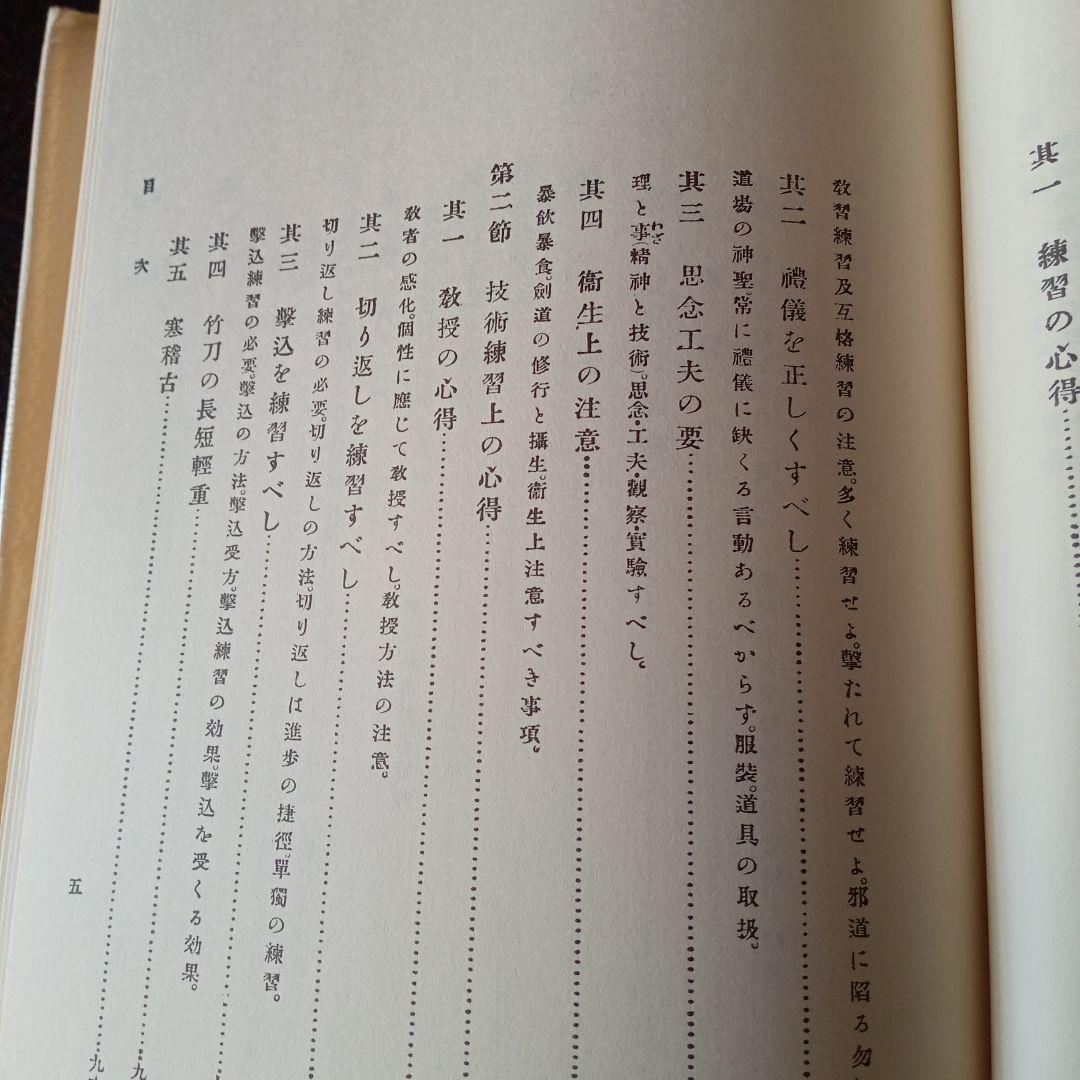 其一　練習の心得
教習練習及互格練習の注意。多く練習せよ。擊たれて練習せよ。邪道に陷る勿
其二　禮儀を正しくすべし
道場の神聖。常に禮儀に缺くる言動あるべからず。服裝。道具の取扱。
其三　思念工夫の要
理と事(精神と技術)。思念・工夫・觀察・實驗すべし。
わざ
其四　衞生上の注意
暴飮暴食。劍道の修行と攝生。衞生上注意すべき事項。
第二節　技術練習上の心得
其一　敎授の心得
敎者の感化。個性に應じて敎授すべし。敎授方法の注意。
其二　切り返しを練習すべし
切り返し練習の必要。切り返しの方法。切り返しは進步の捷徑。單獨の練習。
其三　擊込を練習すべし
擊込練習の必要。擊込の方法。擊込受方。擊込練習の効果。擊込を受くる効果。
其四　竹刀の長短輕重
九
其五　寒稽古
九
目次
五